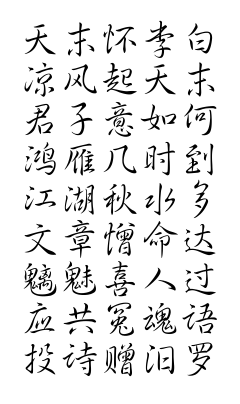 天末怀李白
凉风起天末
君子意如何
鸿雁几时到
江湖秋水多
文章憎命达
魑魅喜人过
应共冤魂语
投诗赠汨罗